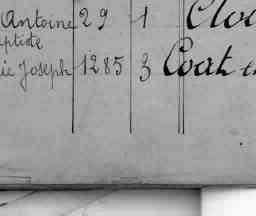 Antoine 29 1 Cloa
aptiste
ie Joseph 1285 3 Coat